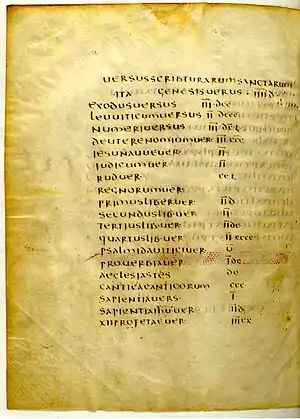 uersus scribturarum sanctarum
ita genesis uersus īīīīd
exodus uersus īīīdcc
leuiticum uersus īīdccc
numeri uersus īīīdcl
deuterenomium uer īīīccc
iesu naue uer īī
iudicum uer īī
rud uer ccl
regnorum uer
primus liber uer īīd
secundus lib uer īī
tertius lib uer īīdc
quartus lib uer īīcccc
psalmi dauitici uer v̄
prouerbia uer īdc
aeclesiastes dc
cantica canticorum ccc
sapientia uers ī
sapientia ihu uer īīd
xii profetae uer īīīcx